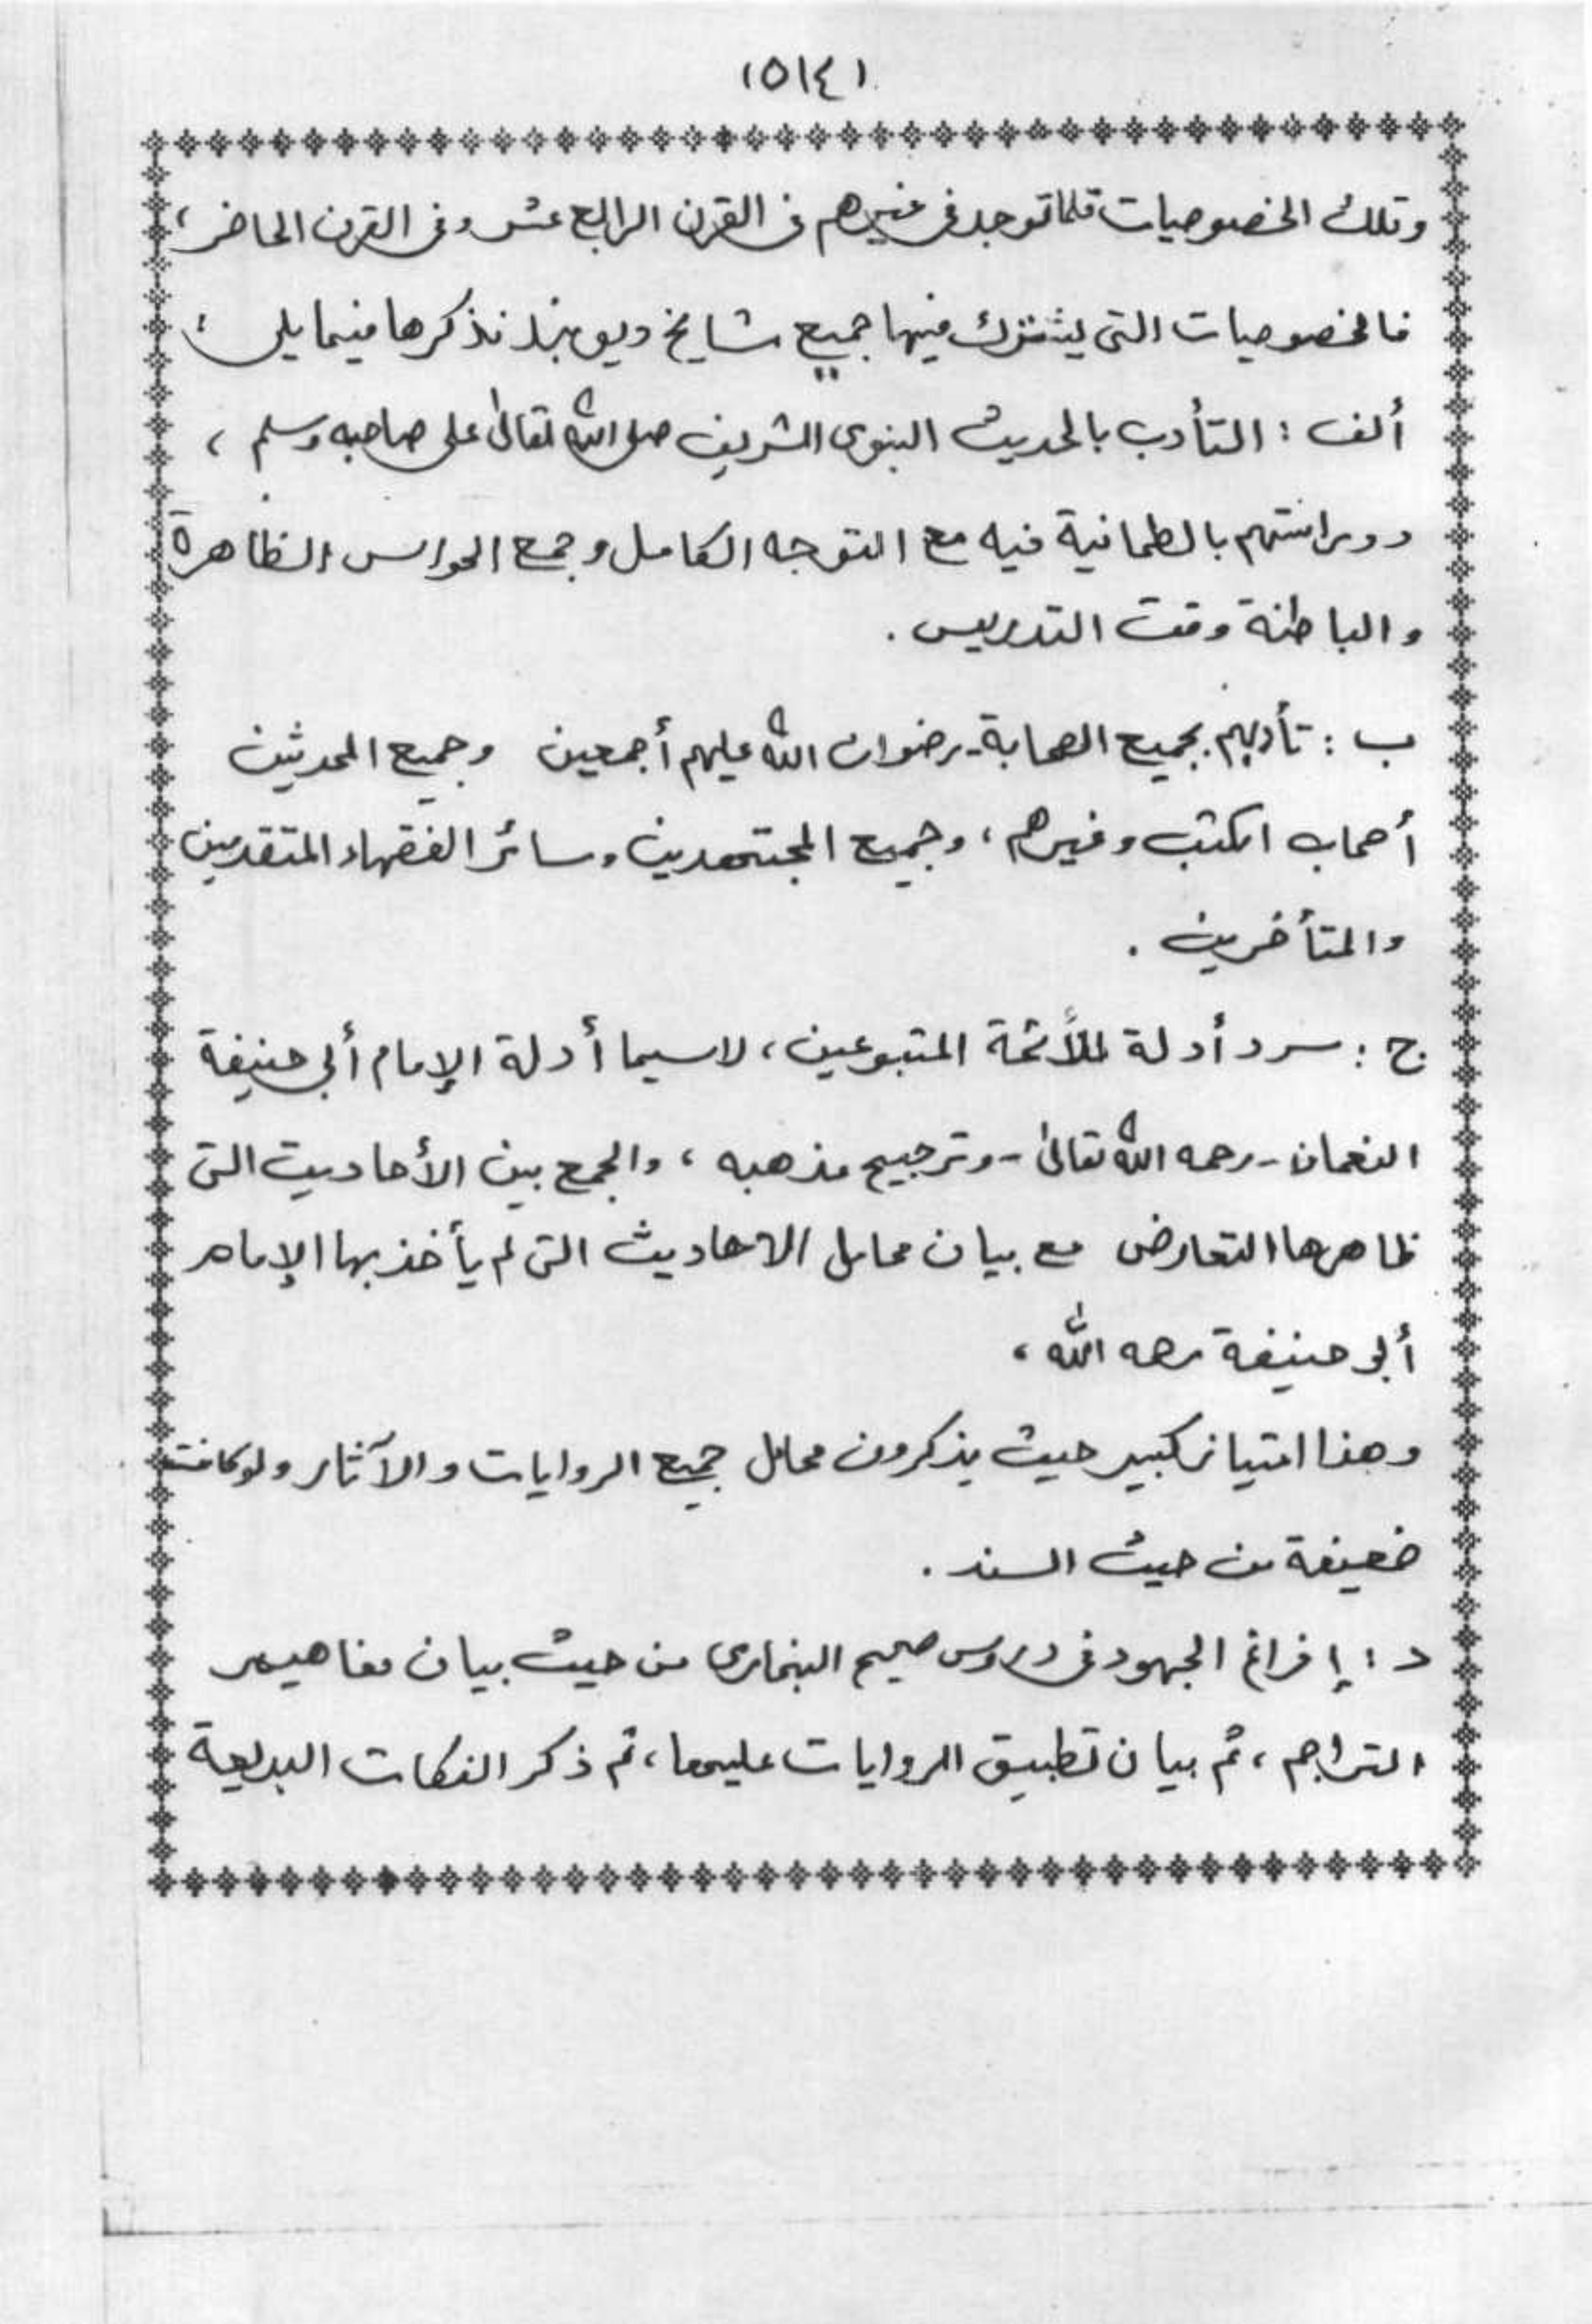 (٥١٤)
وتلك الخصوصيات قلما توجد في غيرهم في القرن الرابع عشر وفي القرن الحاضر،
فالخصوصيات التي يشترك فيها جميع مشايخ ديوبند نذكرها فيما يلي :
ألف : التأدب بالحديث النبوي الشريف صلى الله تعالى على صاحبه وسلم ،
ودراستهم بالطمانية فيه مع التوجه الكامل وجمع الحواس الظاهرة
والباطنة وقت التدريس .
ب : تأدبهم بجميع الصحابة - رضوان الله عليهم أجمعين وجميع المحدثين
أصحاب الكتب وغيرهم ، وجميع المجتهدين وسائر الفقهاء المتقدمين
والمتأخرين .
ج : سرد أدلة للأئمة المتبوعين ، لاسيما أدلة الإمام أبي حنيفة
النعمان - رحمه الله تعالى - وترجيح مذهبه ، والجمع بين الأحاديث التي
ظاهرها التعارض مع بيان محامل الاحاديث التي لم يأخذ بها الإمام
أبي حنيفة رحمه الله ،
وهذا امتياز كبير حيث يذكرون محامل جميع الروايات والآثار ولو كانت
ضعيفة من حيث السند .
د : إفراغ الجهود في دروس صحيح البخاري من حيث بيان مفاهيم
التراجم ، ثم بيان تطبيق الروايات عليها ، ثم ذكر النكات البديعة